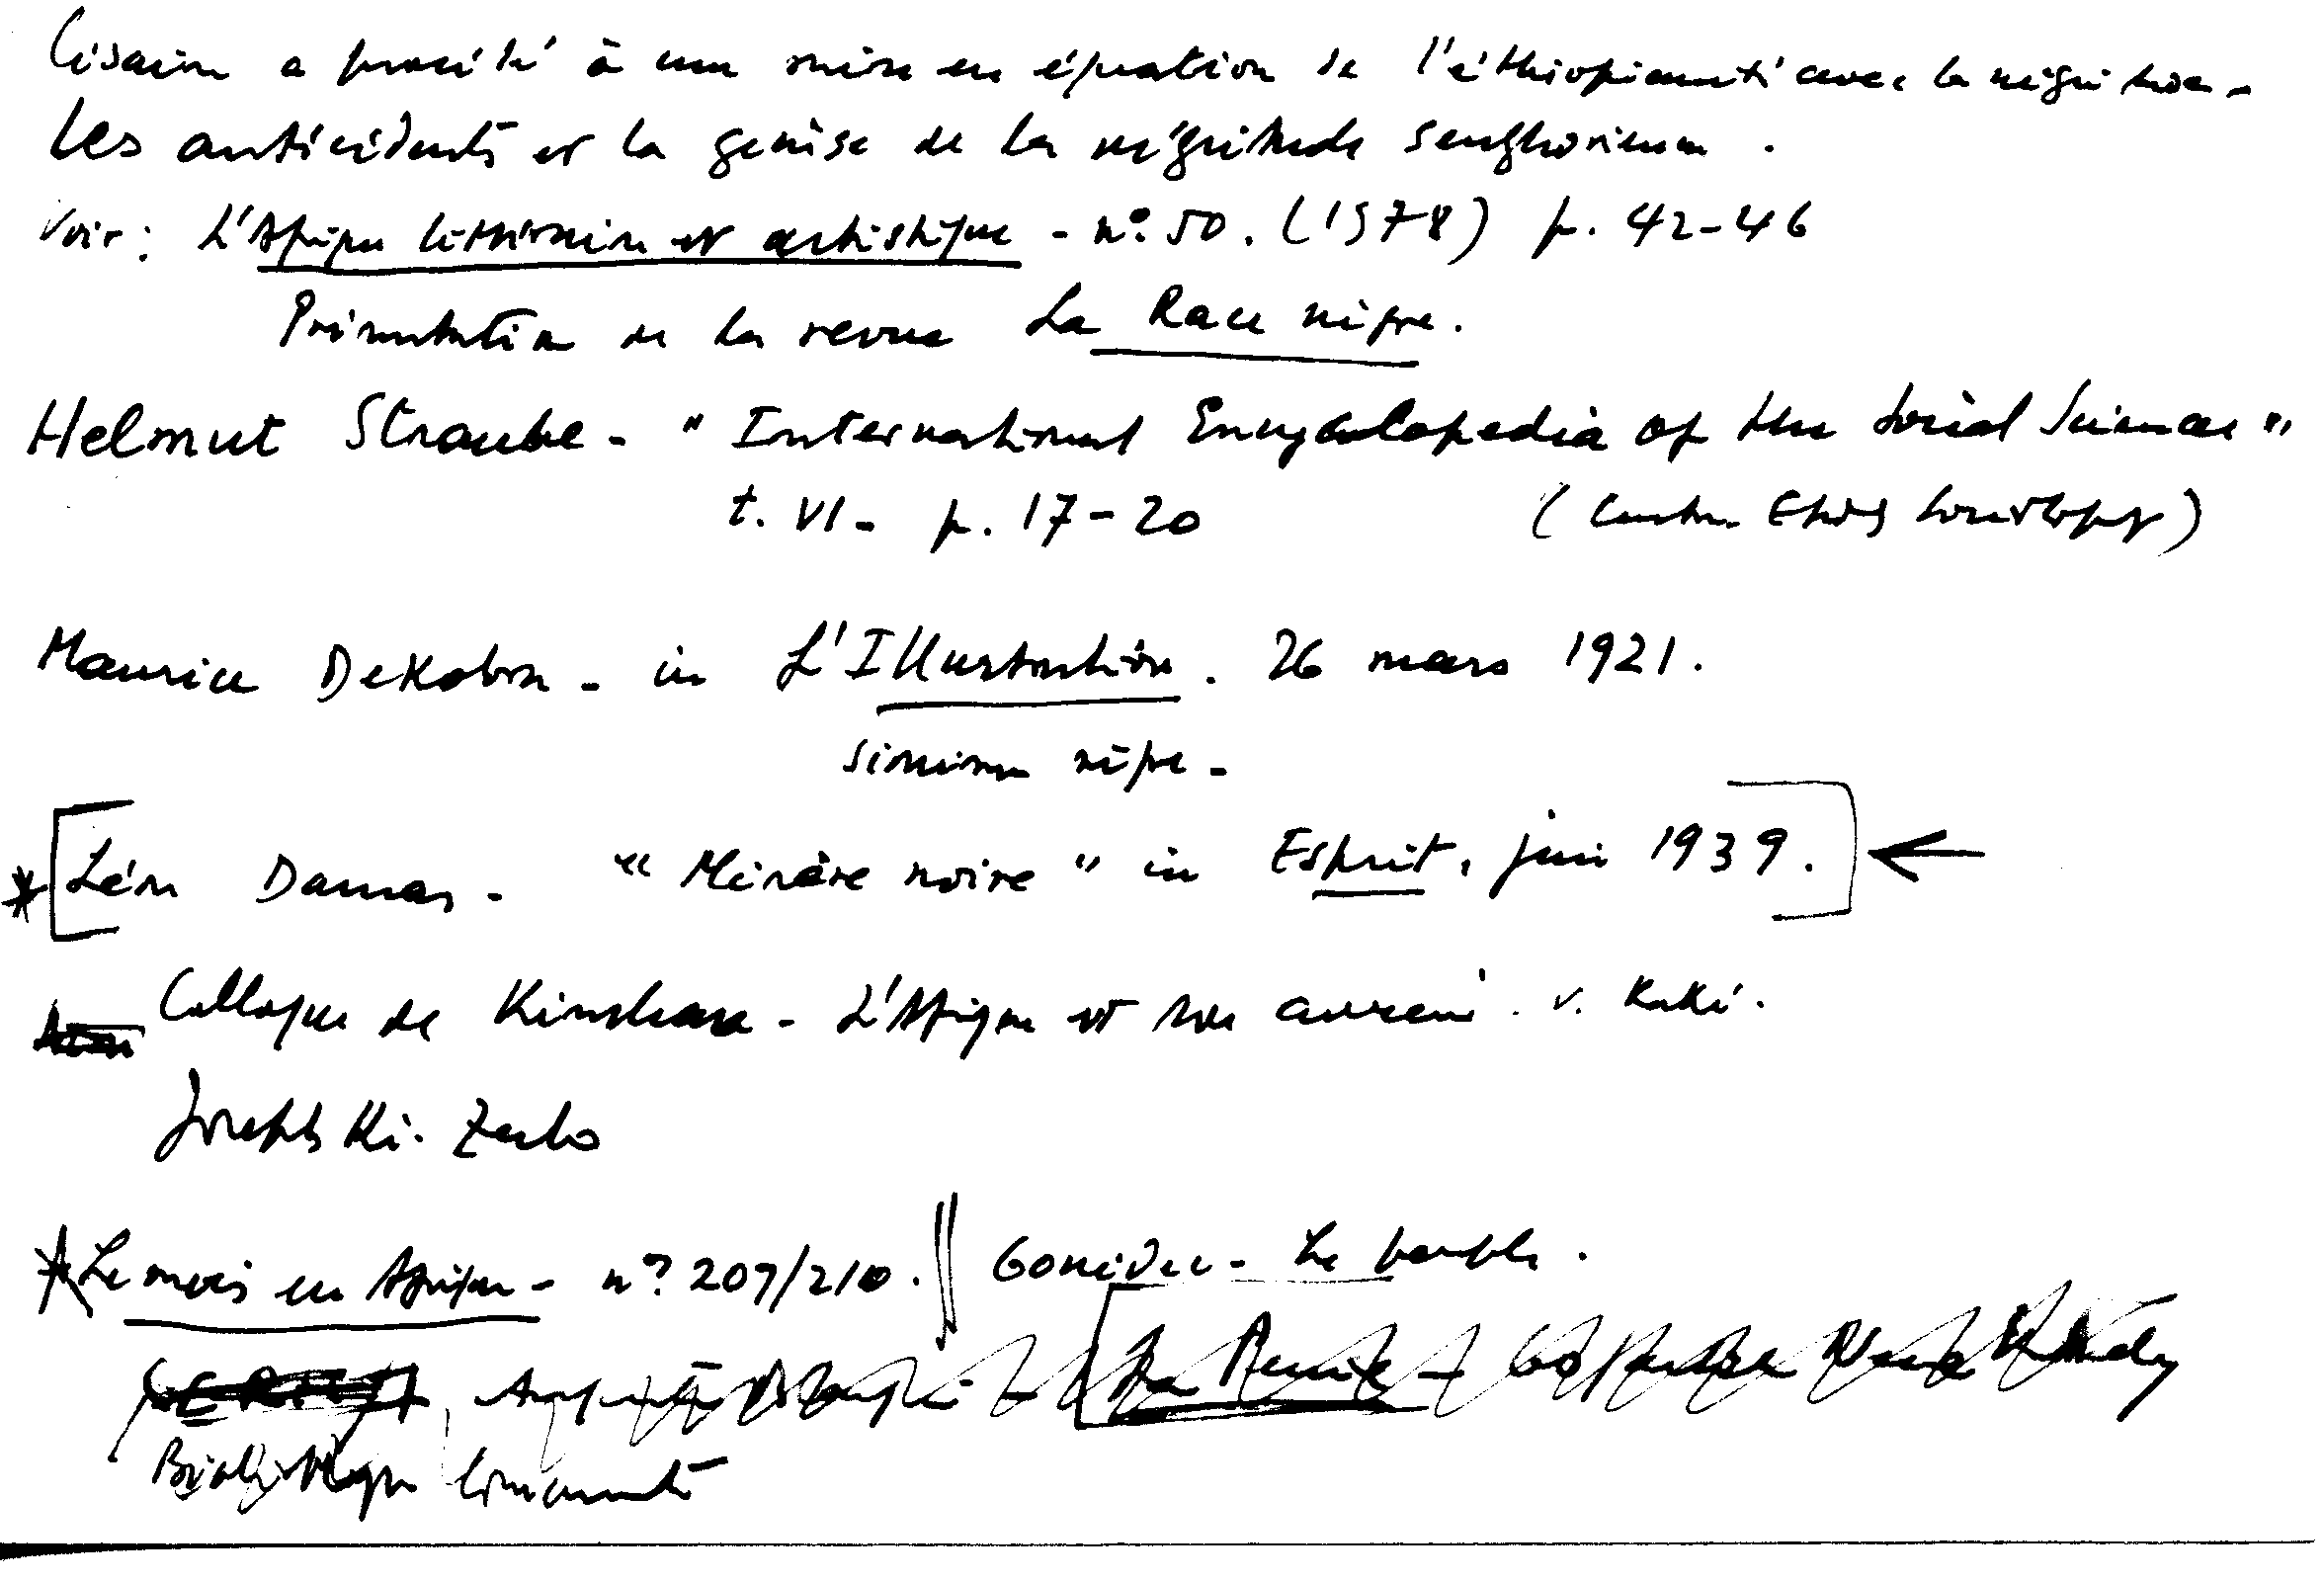 Césaire a procédé à une mise en équation de l'éthiopianité avec la négritude -
Les antécédents et la genèse de la négritude senghorienne.
Voir : L'Afrique littéraire et artistique - n° 50. (1978) p. 42-46
Présentation de la revue La Race nègre.
Helmut Straube - "International Encyclopedia of the Social Sciences"
t. VI - p. 17-20 (Centre Etudes Sociologiques)
Maurice Dekobra - in L'Illustration. 26 mars 1921.
nègre -
* [Léon Damas - "Misère noire" in Esprit, juin 1939.] ←
Colloque de Kinshasa - L'Afrique et son avenir. v. Kaké.
Joseph Ki-Zerbo
* Le mois en Afrique - n° 209/210. || Gonidec - Le peuple.